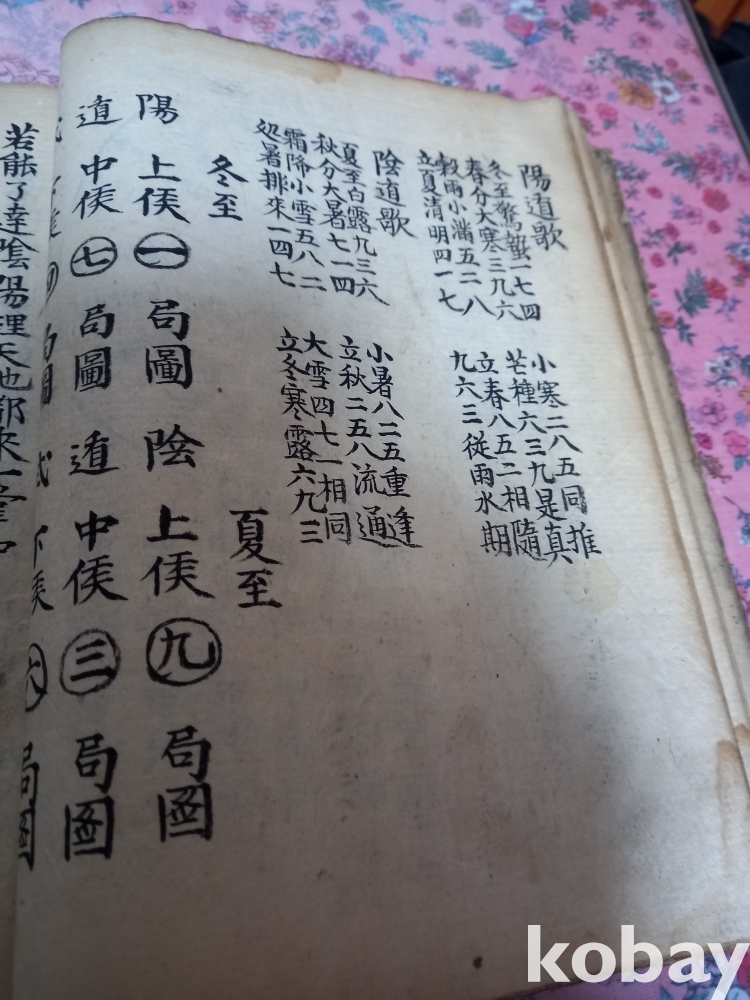 陽遁歌
冬至驚蟄一七四 小寒二八五同推
春分大寒三九六 芒種六三九是真
穀雨小滿五二八 立春八五二相隨
立夏清明四一七 九六三從雨水期
陰遁歌
夏至白露九三六 小暑八二五重逢
秋分大暑七一四 立秋二五八流通
霜降小雪五八二 大雪四七一相同
処暑排來一四七 立冬寒露六九三
冬至 夏至
陽 上候 一 局圖 陰 上候 九 局圖
遁 中候 七 局圖 遁 中候 三 局圖
局圖 式 下候 六 局圖
若能了達陰陽理天地都來一
kobay